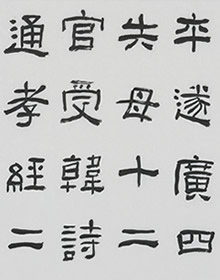 卒遂廣四
失母十二
官受韓詩
通孝經二